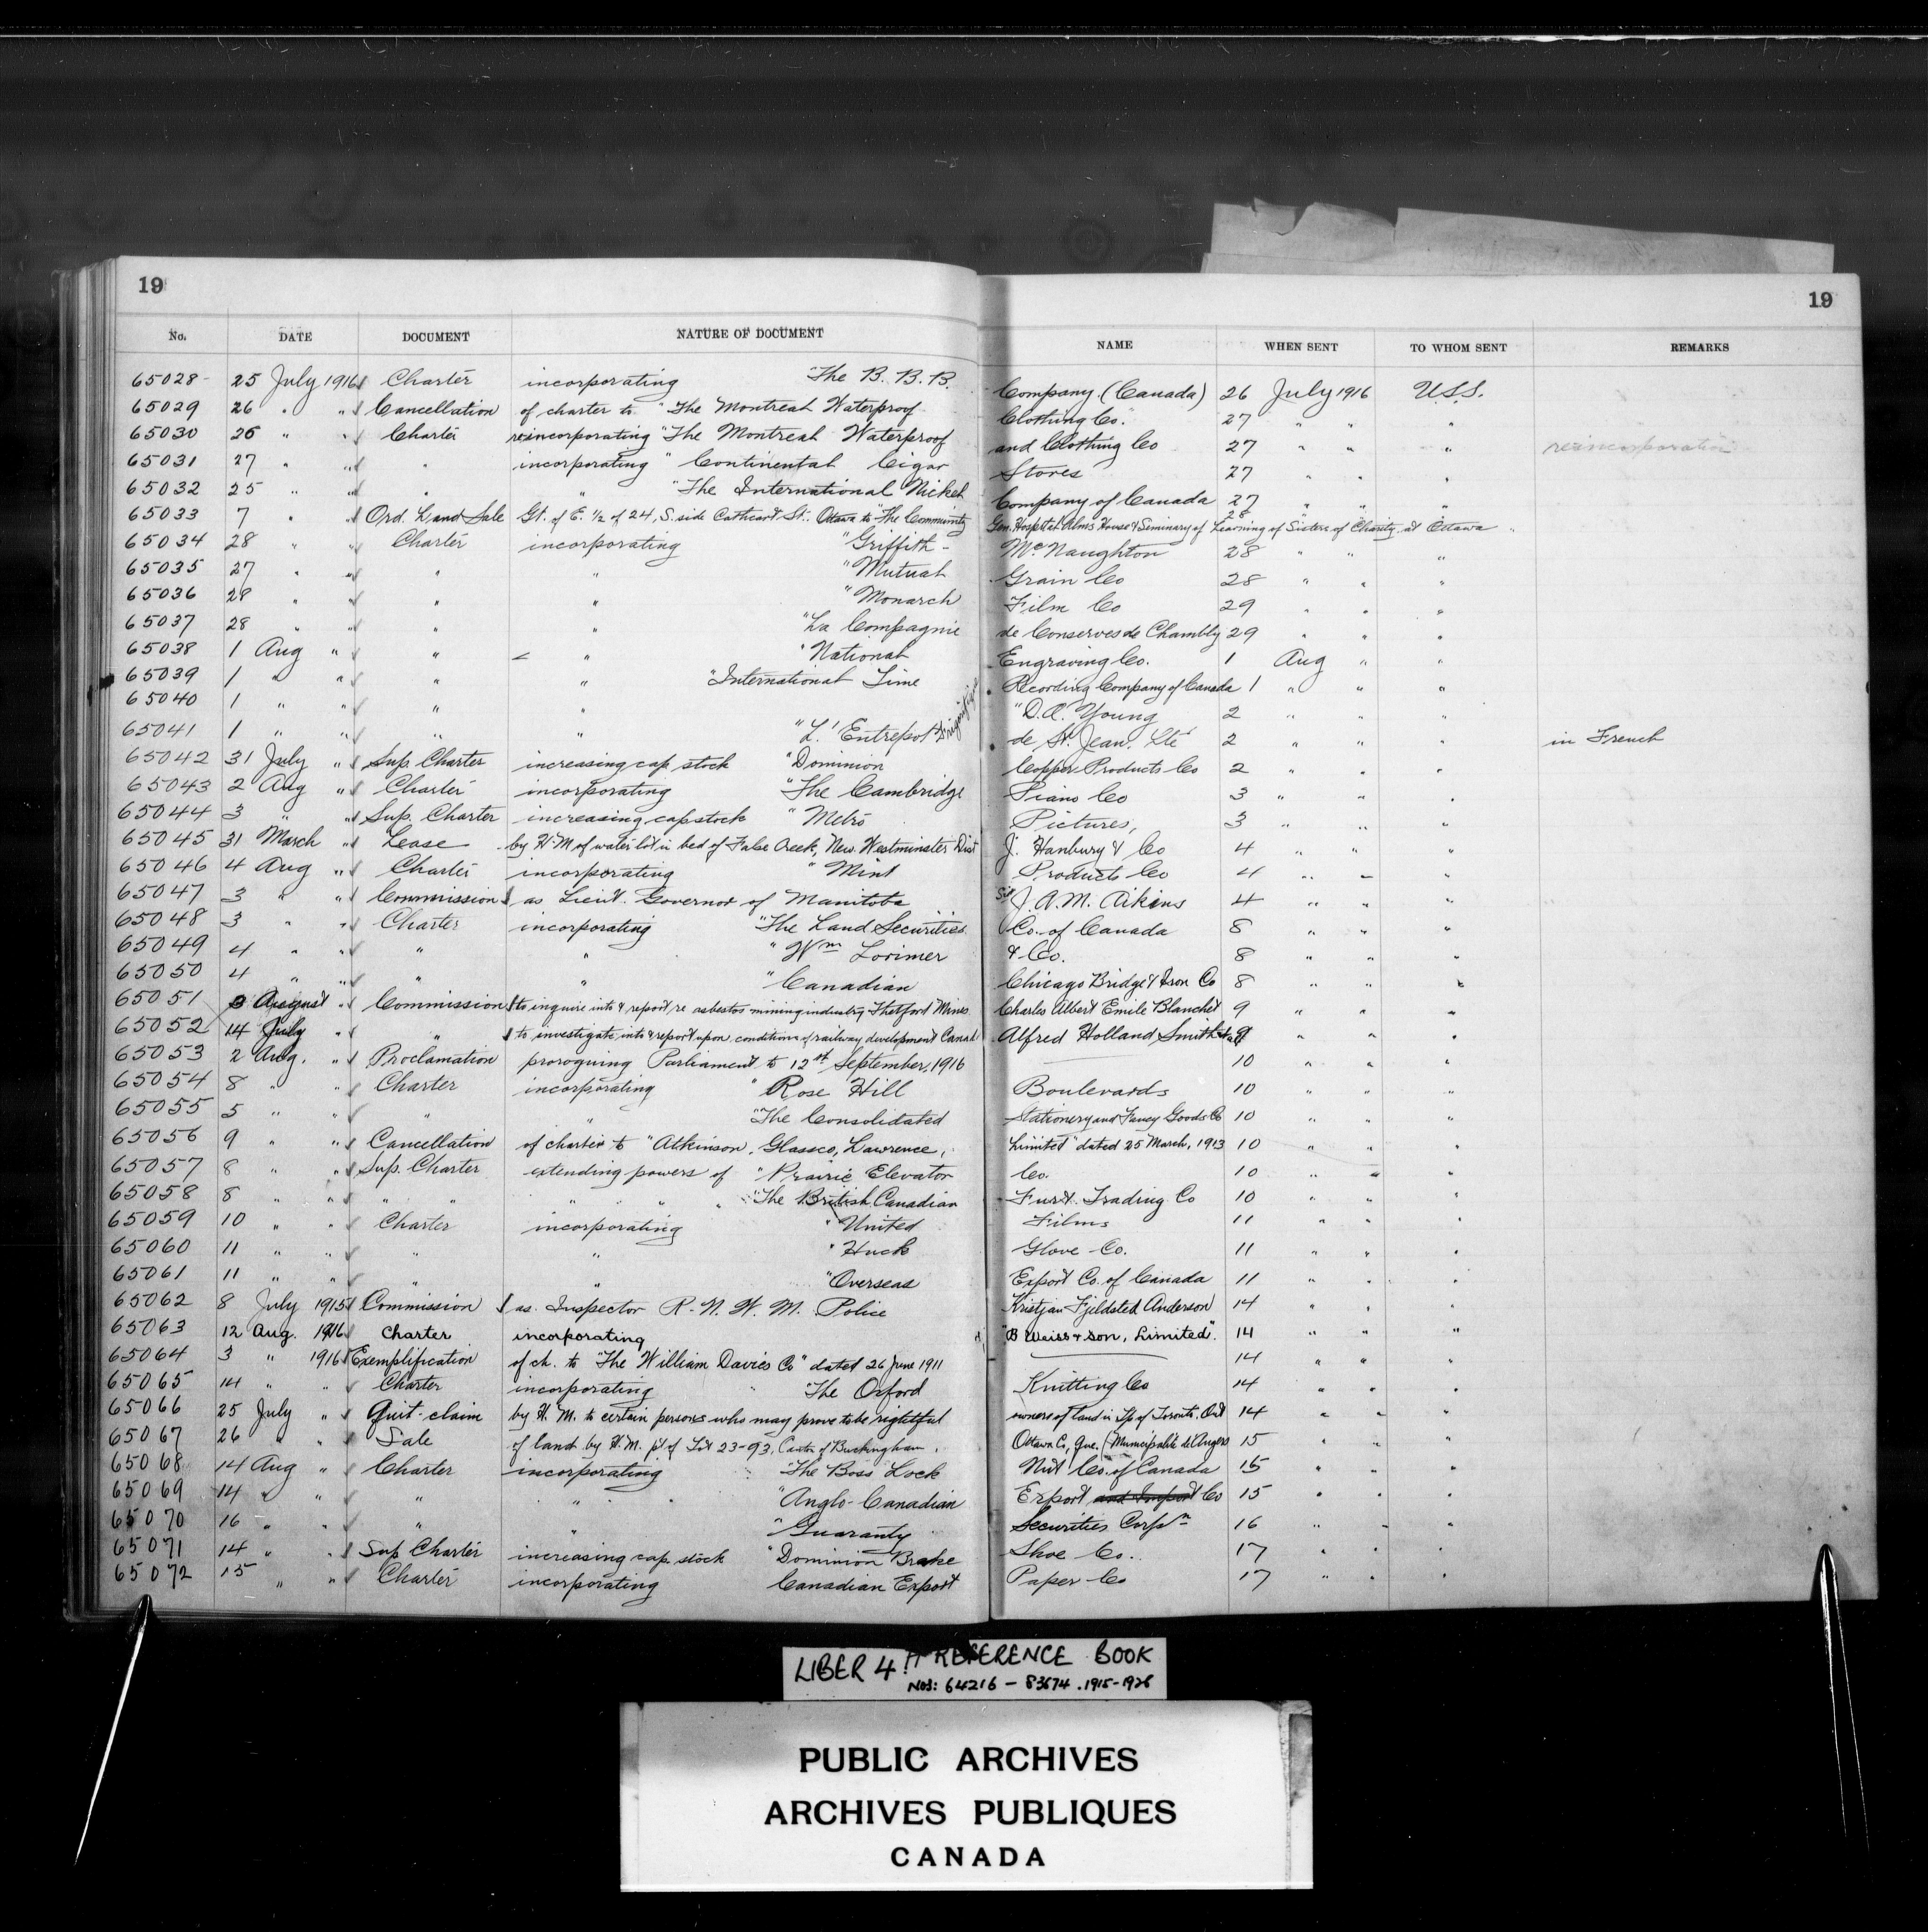 19
19
No. DATE DOCUMENT NATURE OF DOCUMENT NAME WHEN SENT TO WHOM SENT REMARKS
65028 25 July 1916 Charter incorporating "The B. B. B. Company (Canada) 26 July 1916 U.S.S.
65029 26 " " Cancellation of charter to "The Montreal Waterproof Clothing Co." 27 " " "
65030 26 " " Charter reincorporating "The Montreal Waterproof and Clothing Co 27 " " " reincorporation
65031 27 " " " incorporating "Continental Cigar Stores 27 " " "
65032 25 " " " " "The International Nickel Company of Canada 27 " " "
65033 7 " " Ord. Land Sale Gt. of E. 1/2 of 24, S. side Cathcart St. Ottawa to "The Community Gen. Hospital Alms House & Seminary of Learning of Sisters of Charity at Ottawa 28 "
65034 28 " " Charter incorporating "Griffith- McNaughton 28 " " "
65035 27 " " " " "Mutual Grain Co 28 " " "
65036 28 " " " " "Monarch Film Co 29 " " "
65037 28 " " " " "La Compagnie de Conserves de Chambly 29 " " "
65038 1 Aug " " " "National Engraving Co. 1 Aug " "
65039 1 " " " " "International Time Recording Company of Canada 1 " " "
65040 1 " " " " "D.A. Young 2 " " "
65041 1 " " " " "L'Entrepot Frigorifique de St. Jean, Lte 2 " " " in French
65042 31 July " Sup. Charter increasing cap stock "Dominion Copper Products Co 2 " " "
65043 2 Aug " Charter incorporating "The Cambridge Piano Co 3 " " "
65044 3 " " Sup. Charter increasing cap stock "Metro Pictures, 3 " " "
65045 31 March " Lease by H.M. of water lot in bed of False Creek, New Westminster Dist J. Hanbury & Co 4 " " "
65046 4 Aug " Charter incorporating "Mint Products Co 4 " " "
65047 3 " " Commission as Lieut. Governor of Manitoba Sir J. A. M. Aikins 4 " " "
65048 3 " " Charter incorporating "The Land Securities Co. of Canada 8 " " "
65049 4 " " " " "Wm Lorimer & Co. 8 " " "
65050 4 " " " " "Canadian Chicago Bridge & Iron Co 8 " " "
65051 3 August " Commission to inquire into & report re asbestos mining industry Thetford Mines Charles Albert Emile Blanchet 9 " " "
65052 14 July " " to investigate into & report upon conditions of railway development Canada Alfred Holland Smith et al 9 " " "
65053 2 Aug. " Proclamation proroguing Parliament to 12st September, 1916 10 " " "
65054 8 " " Charter incorporating "Rose Hill Boulevards 10 " " "
65055 5 " " " " "The Consolidated Stationery and Fancy Goods Co 10 " " "
65056 9 " " Cancellation of charter to "Atkinson, Glassco, Lawrence, Limited" dated 25 March, 1913 10 " " "
65057 8 " " Sup. Charter extending powers of "Prairie Elevator Co. 10 " " "
65058 8 " " " " " " "The British Canadian Fur & Trading Co 10 " " "
65059 10 " " Charter incorporating "United Films 11 " " "
65060 11 " " " " "Huck Glove Co. 11 " " "
65061 11 " " " " "Overseas Export Co. of Canada 11 " " "
65062 8 July 1915 Commission as Inspector R. N. W. M. Police Kristjan Fjeldsted Anderson 14 " " "
65063 12 Aug. 1916 Charter incorporating "B Weiss & Son, Limited". 14 " " "
65064 3 " 1916 Exemplification of ch. to "The William Davies Co" dated 26 June 1911 14 " " "
65065 14 " " Charter incorporating "The Oxford Knitting Co 14 " " "
65066 25 July " Quit-claim by H. M. to certain persons who may prove to be rightful owners of land in Tp of Toronto, Ont 14 " " "
65067 26 " " Sale of land by H.M. pt of Lot 23-93, Canton of Buckingham, Ottawa Co, Que. (Municipalité de Angers 15 " " "
65068 14 Aug " Charter incorporating "The Boss Lock Nut Co. of Canada 15 " " "
65069 14 " " " " "Anglo-Canadian Export and Import Co 15 " " "
65070 16 " " " " "Guaranty Securities Corpn 16 " " "
65071 14 " " Sup Charter increasing cap. stock "Dominion Brake Shoe Co. 17 " " "
65072 15 " " Charter incorporating Canadian Export Paper Co 17 " " "
LIBER 4 REFERENCE BOOK
Nos: 64216 - 83674 . 1915-1926
PUBLIC ARCHIVES
ARCHIVES PUBLIQUES
CANADA